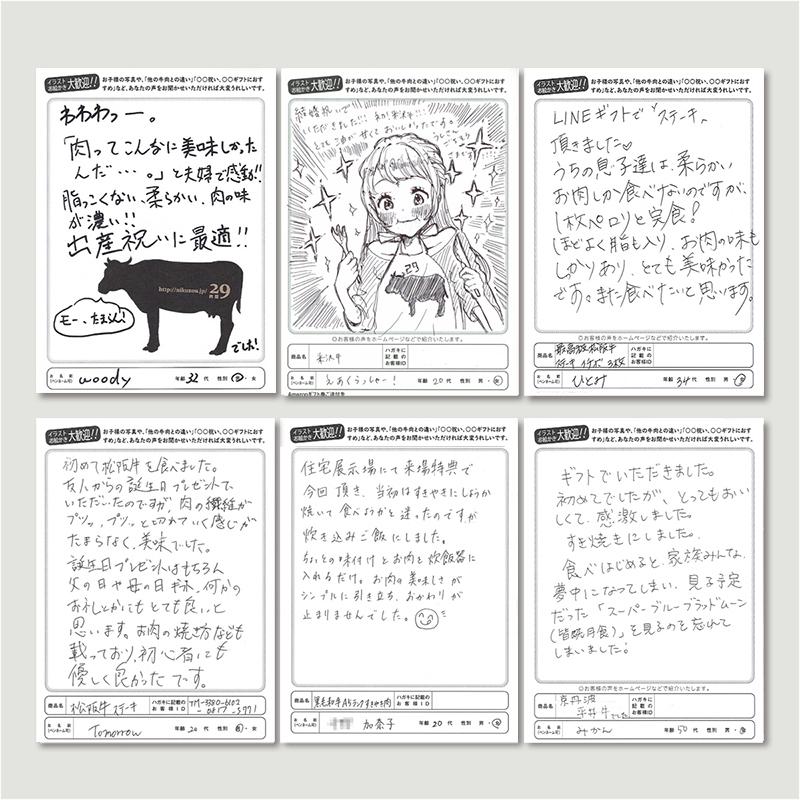 イラスト お絵かき 大歓迎!!
お子様の写真や、「他の牛肉との違い」「〇〇祝い、〇〇ギフトにおす
すめ」など、あなたの声をお聞かせいただければ大変うれしいです。
わわわっー。
「肉ってこんなに美味しかった
んだ…。」と夫婦で感動!!
脂っこくない、柔らかい、肉の味
が濃い!!
出産祝いに最適!!
http://nikuzou.jp/ 29
モー、たまらん!
でした!
お名前(ペンネーム可) woody 年齢 32 代 性別 男・女
イラスト お絵かき 大歓迎!!
お子様の写真や、「他の牛肉との違い」「〇〇祝い、〇〇ギフトにおす
すめ」など、あなたの声をお聞かせいただければ大変うれしいです。
結婚祝いで
いただきました!!!
とても油が甘くておいしかったです。
29
〇お客様の声をホームページなどで紹介いたします。
商品名 米沢牛 ハガキに記載のお客様ID
お名前(ペンネーム可) えあくらっしゃー! 年齢 20 代 性別 男・女
イラスト お絵かき 大歓迎!!
お子様の写真や、「他の牛肉との違い」「〇〇祝い、〇〇ギフトにおす
すめ」など、あなたの声をお聞かせいただければ大変うれしいです。
LINEギフトで"ステーキ"
頂きました♡
うちの息子達は、柔らかい
お肉しか食べないのですが、
1枚ペロリと完食!
ほどよく脂も入り、お肉の味も
しっかりあり、とても美味かった
です。また食べたいと思います。
〇お客様の声をホームページなどで紹介いたします。
商品名 最高級松阪牛
ステーキ イチボ 3枚
ハガキに記載のお客様ID
お名前(ペンネーム可) ひとみ 年齢 34 代 性別 男・女
イラスト お絵かき 大歓迎!!
お子様の写真や、「他の牛肉との違い」「〇〇祝い、〇〇ギフトにおす
すめ」など、あなたの声をお聞かせいただければ大変うれしいです。
初めて松阪牛を食べました。
友人からの誕生日プレゼントで
いただいたのですが、肉の繊維が
プツッ、プツッと切れていく感じが
たまらなく、美味でした。
誕生日プレゼントはもちろん
父の日や母の日ギフト、何かの
お礼とかにもとても良いと
思います。お肉の焼き方なども
載っており、初心者にも
優しく良かったです。
商品名 松阪牛ステーキ ハガキに記載のお客様ID
お名前(ペンネーム可) Tomorrow 年齢 20 代 性別 男・女
イラスト お絵かき 大歓迎!!
お子様の写真や、「他の牛肉との違い」「〇〇祝い、〇〇ギフトにおす
すめ」など、あなたの声をお聞かせいただければ大変うれしいです。
住宅展示場にて来場特典で
今回頂き、当初はすきやきにしようか
焼いて食べようかと迷ったのですが
炊き込みご飯にしました。
ちょっとの味付けとお肉を炊飯器に
入れるだけ。お肉の美味しさが
シンプルに引き立ち、おかわりが
止まりませんでした。
商品名 黒毛和牛A5ランクすきやき肉 ハガキに記載のお客様ID
お名前(ペンネーム可) 加奈子 年齢 20 代 性別 男・女
イラスト お絵かき 大歓迎!!
お子様の写真や、「他の牛肉との違い」「〇〇祝い、〇〇ギフトにおす
すめ」など、あなたの声をお聞かせいただければ大変うれしいです。
ギフトでいただきました。
初めてでしたが、とってもおいし
くて、感激しました。
すき焼きにしました。
食べはじめると、家族みんな、
夢中になってしまい、見る予定
だった「スーパーブルーブラッドムーン
(皆既月食)」を見るのを忘れて
しまいました!
〇お客様の声をホームページなどで紹介いたします。
商品名 京丹波
平井牛でした
ハガキに記載のお客様ID
お名前(ペンネーム可) みかん 年齢 50 代 性別 男・女